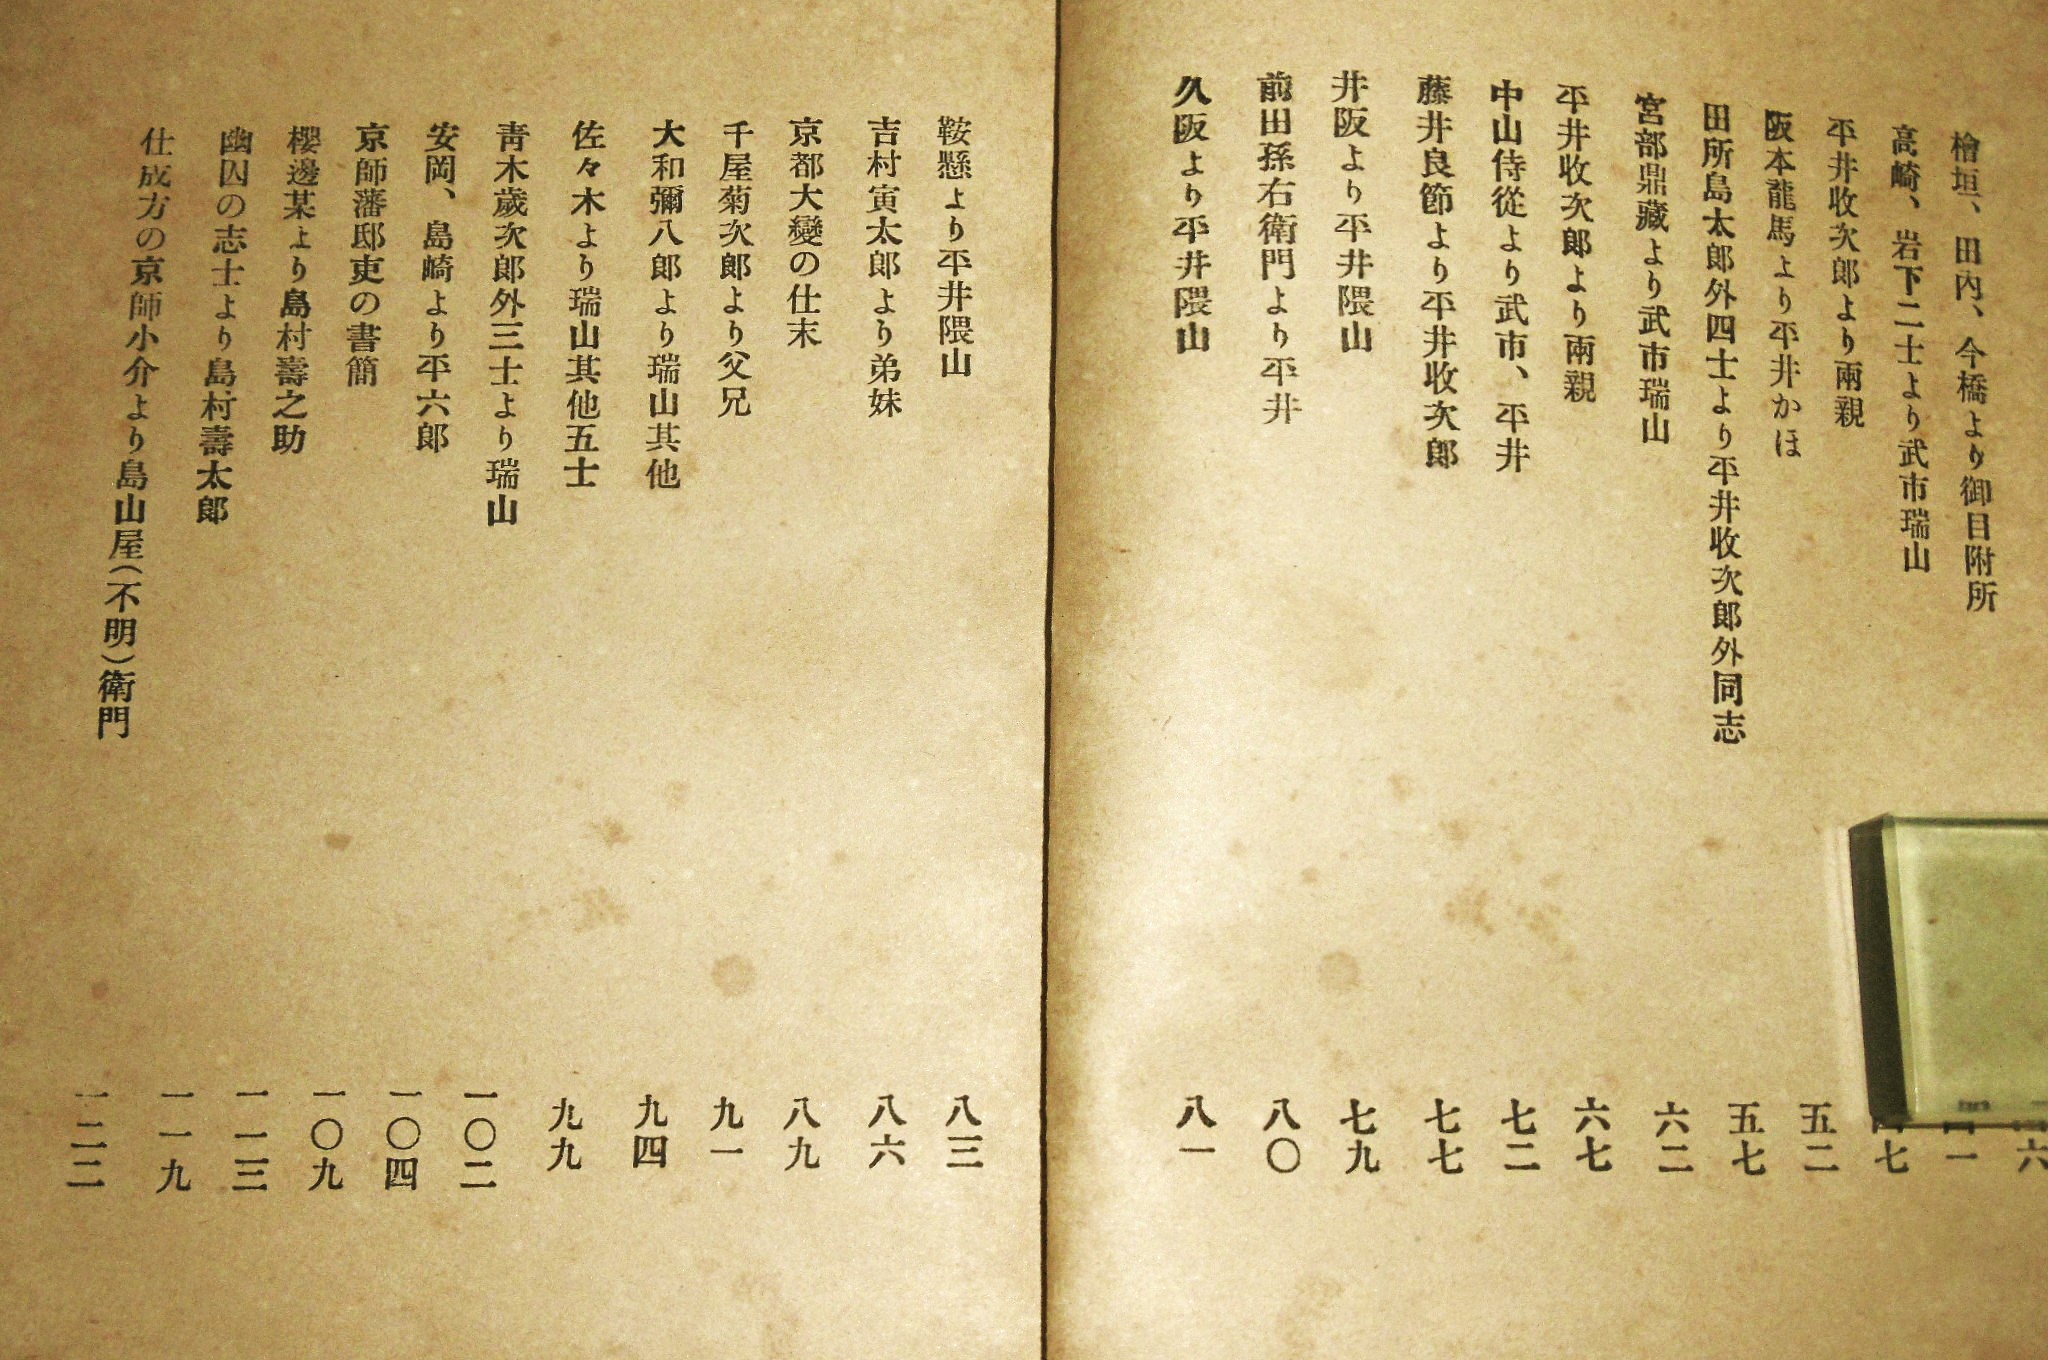 檜垣、田内、今橋より御目附所 六
高崎、岩下二士より武市瑞山 四一
平井收次郎より兩親 四七
阪本龍馬より平井かほ 五二
田所島太郎外四士より平井收次郎外同志 五七
宮部鼎藏より武市瑞山 六二
平井收次郎より兩親 六七
中山侍從より武市、平井 七二
藤井良節より平井收次郎 七七
井阪より平井隈山 七九
前田孫右衛門より平井 八〇
久阪より平井隈山 八一
鞍懸より平井隈山 八三
吉村寅太郎より弟妹 八六
京都大變の仕末 八九
千屋菊次郎より父兄 九一
大和彌八郎より瑞山其他 九四
佐々木より瑞山其他五士 九九
靑木歲次郎外三士より瑞山 一〇二
安岡、島崎より平六郎 一〇四
京師藩邸吏の書簡 一〇九
櫻邊某より島村壽之助 一一三
幽囚の志士より島村壽太郎 一一九
仕成方の京師小介より島山屋(不明)衛門 一二二